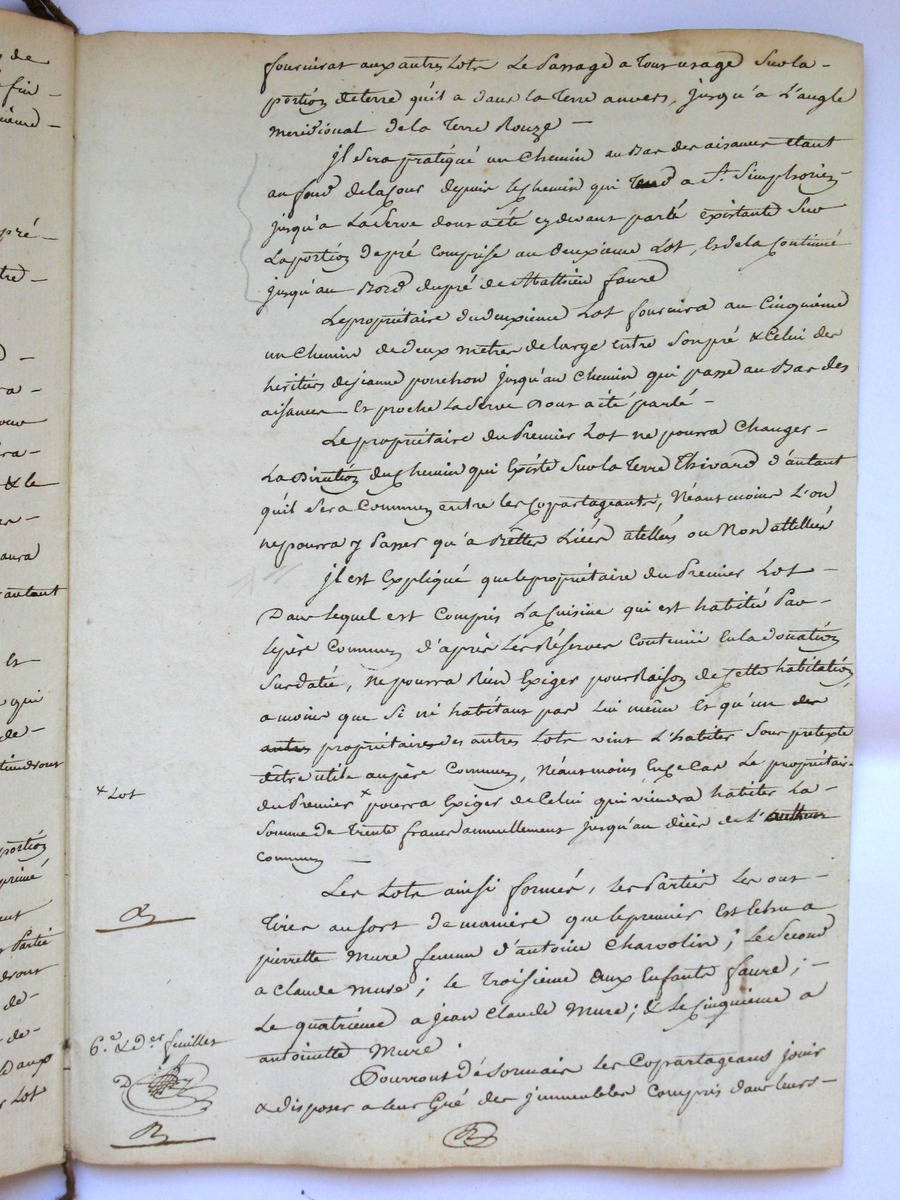 fourniras aux autres Lots Le Passage a Tout usage Sur la -
portion de terre qu'il a dans la Terre anvers, jusqu'a L'angle
meridional de la Terre Rouze -
jl Sera pratiqué un Chemin au Bas des aisances étant
au fond de la Cour depuis le chemin qui Tend a St. Simphorien
jusqu'a La Serve dont a été cy devant parlé existante Sur
La portion de pré comprise au deuxieme Lot, Et de la Continué
jusqu'au Bord du pré de Mathieu faure
Le propriétaire du deuxieme Lot fournira au Cinquieme
un Chemin de deux metres de large entre Son pré & Celui des
heritiers de jeanne ponchon jusqu'au Chemin qui passe au Bas des
aisances Et proche La Serve Dont a été parlé -
Le propriétaire du Premier Lot ne pourra Changer -
La Direction du Chemin qui Existe Sur la Terre Thivard d'autant
qu'il Sera Commun entre les Copartageants, Néant moins L'on
ne pourra y Passer qu'a Bettes Liées atellées ou Non attellées
jl est Expliqué que le propriétaire du Premier Lot -
Dans lequel est Compris La Cuisine qui est habitée Par -
le père Commun d'après Les Réserves Contenües En la donation
Sus datée, ne pourra Rien Exiger pour Raison de Cette habitation
a moins que Si ni habitant pas Lui même Et qu'un des
autres propriétaires des autres Lots vint L'habiter Sous pretexte
d'être utile au père Commun, Néantmoins En ce Cas Le propriétaire
du Premier × pourra Exiger de Celui qui viendra habiter La -
Somme de Trente francs annuellement jusqu'au décès de l'autheur
Commun -
× Lot
Les Lots ainsi formés, les Parties Les ont -
Tirés au Sort de maniere que le premier Est Echu a
pierrette Mure femme d'antoine Charvolin; le Second
a Claude Mure; le Troisieme aux Enfants faure; -
Le quatrieme a jean Claude Mure; & Le Cinquieme a
antoinette Mure.
6.e & D.er feuillet
Pourront désormais les Copartageans jouir
& disposer a leur Gré des jmmeubles Compris dans leurs -